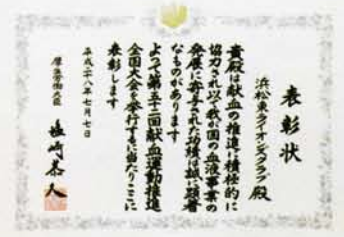 表彰状
浜松東ライオンズクラブ殿
貴殿は献血の推進に積極的に
協力され以て我が国の血液事業の
発展に寄与された功績は誠に顕著
なものがあります
よって第五十二回献血運動推進
全国大会を挙行するに当たりここに
表彰します
平成二十八年七月七日
厚生労働大臣 塩崎恭久